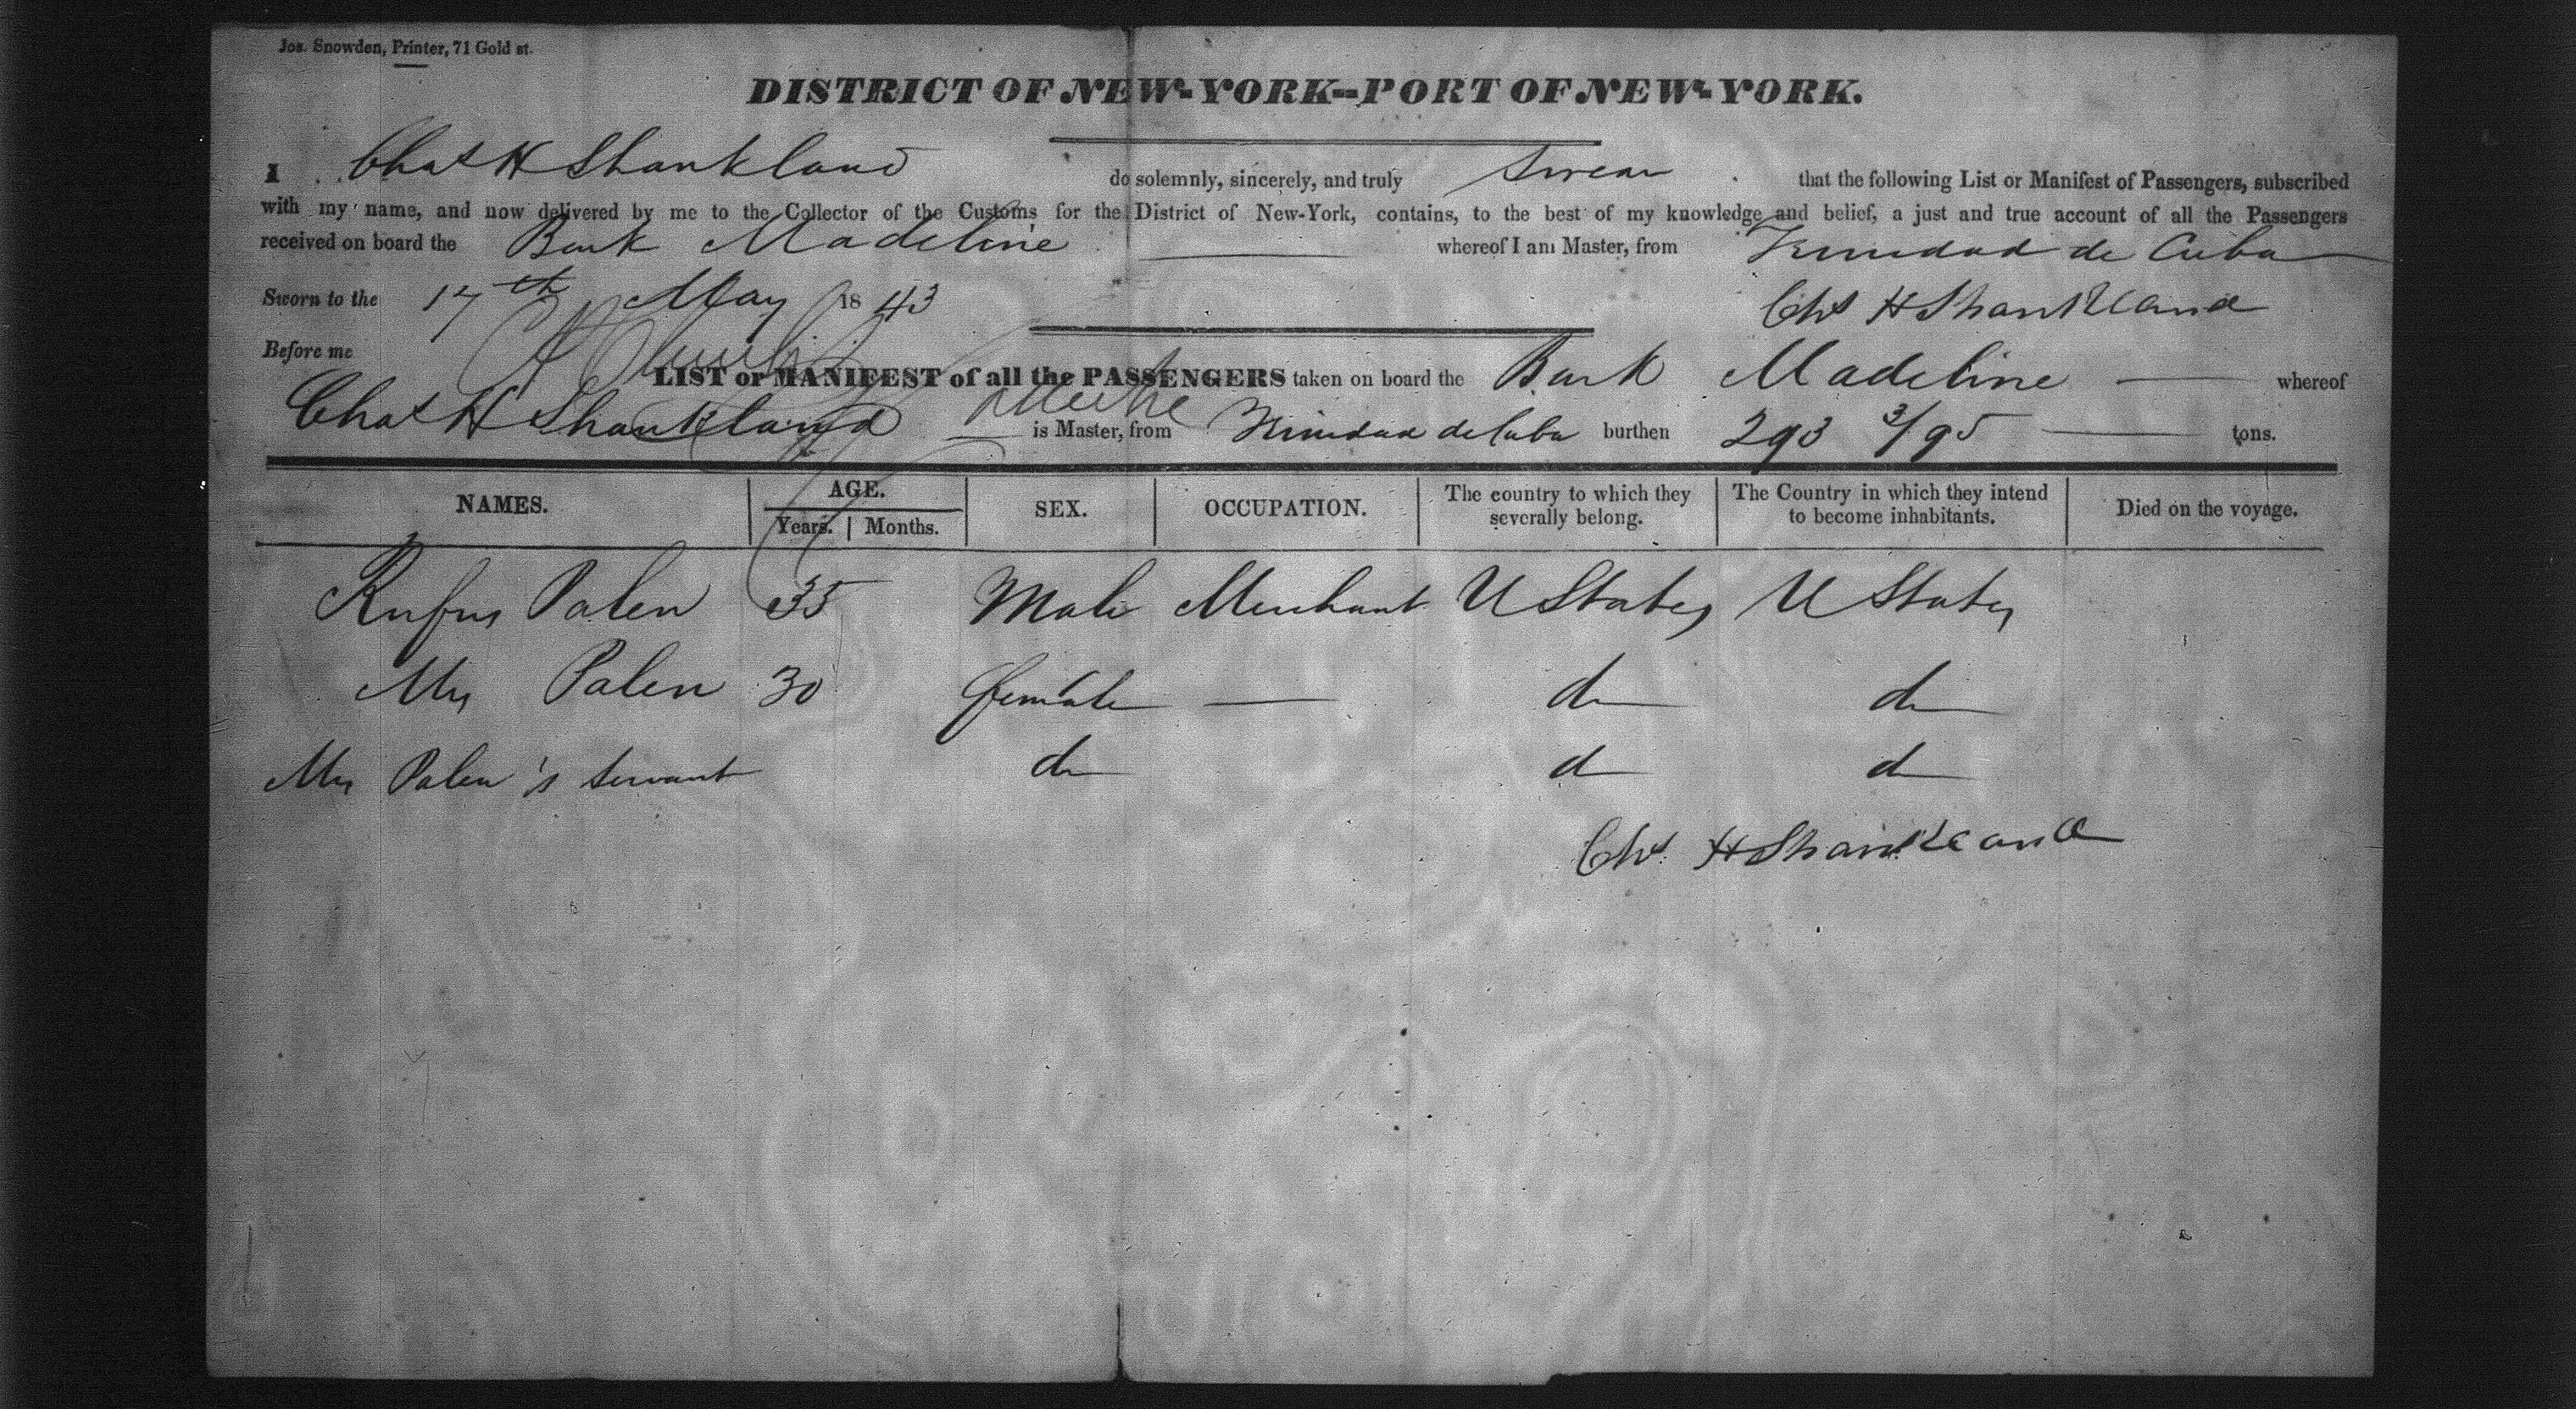 Jos. Snowden, Printer, 71 Gold st.
DISTRICT OF NEW-YORK--PORT OF NEW-YORK.
I Chas H Shankland do solemnly, sincerely, and truly swear that the following List or Manifest of Passengers, subscribed
with my name, and now delivered by me to the Collector of the Customs for the District of New-York, contains, to the best of my knowledge and belief, a just and true account of all the Passengers
received on board the Bark Madeline whereof I am Master, from Trinidad de Cuba
Sworn to the 17th May 1843 Chs H Shankland
Before me
LIST or MANIFEST of all the PASSENGERS taken on board the Bark Madeline whereof
Chas H Shankland is Master, from Trinidad de Cuba burthen 293 3/95 tons.
NAMES. AGE. Years. Months. SEX. OCCUPATION. The country to which they severally belong. The Country in which they intend to become inhabitants. Died on the voyage.
Rufus Palen 35 Male Merchant U States U States
Mrs Palen 30 female — do do
Mrs Palen's servant do do do
Chs H Shankland